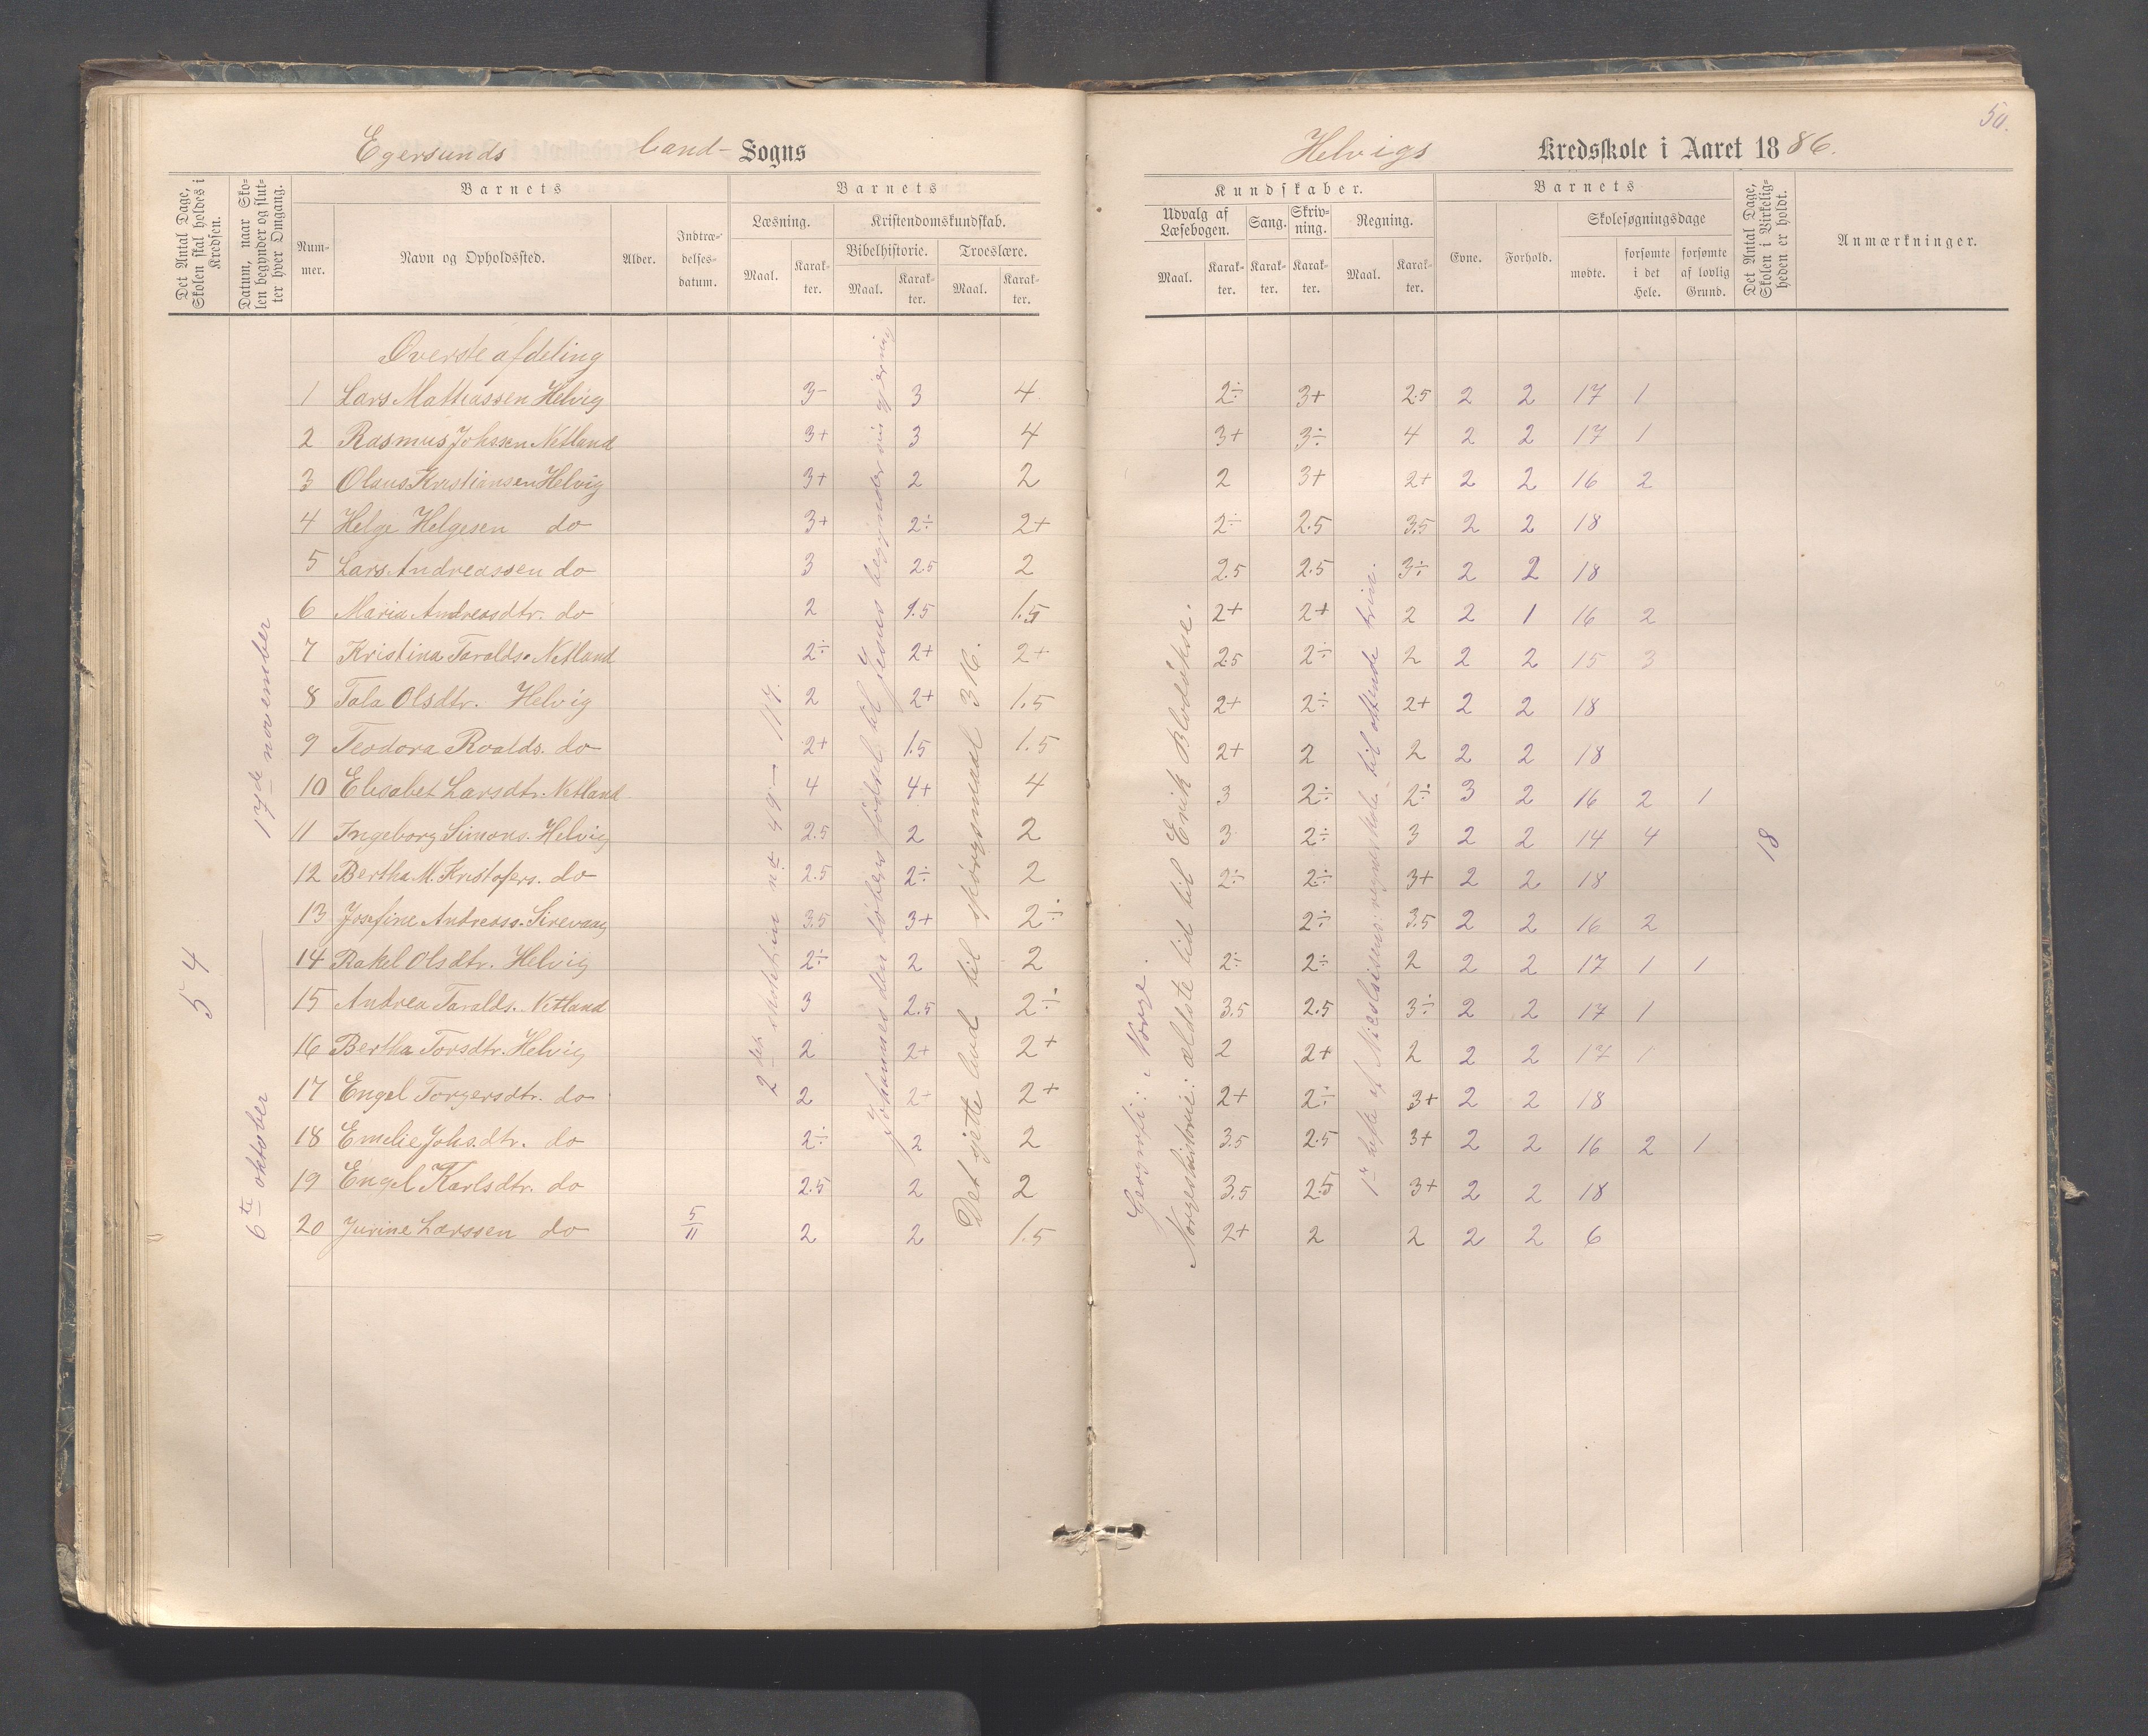 50.
Egersunds land- Sogns
Helvigs Kredsskole i Aaret 1886.
Det Antal Dage, Skolen skal holdes i Kredsen.
Datum, naar Skolen begynder og slutter hver Omgang.
Barnets
Nummer.
Navn og Opholdssted.
Alder.
Indtrædelsesdatum.
Barnets
Læsning.
Kristendomskundskab.
Bibelhistorie.
Troeslære.
Maal. Karakter. Maal. Karakter. Maal. Karakter.
Kundskaber.
Udvalg af Læsebogen.
Sang.
Skrivning.
Regning.
Maal. Karakter. Karakter. Karakter. Maal. Karakter.
Barnets
Evne. Forhold.
Skolesøgningsdage
mødte. forsømte i det Hele. forsømte af lovlig Grund.
Det Antal Dage, Skolen i Virkeligheden er holdt.
Anmærkninger.
Øverste afdeling
1 Lars Mathiassen Helvig 3- 3 4 2÷ 3+ 2.5 2 2 17 1
2 Rasmus Johssen Netland 3+ 3 4 3+ 3÷ 4 2 2 17 1
3 Olaus Kristiansen Helvig 3+ 2 2 2 3+ 2+ 2 2 16 2
4 Helge Helgesen do 3+ 2÷ 2+ 2÷ 2.5 3.5 2 2 18
5 Lars Andreassen do 3 2.5 2 2.5 2.5 3÷ 2 2 18
6 Maria Andreasdtr. do 2 1.5 1.5 2+ 2+ 2 2 1 16 2
7 Kristina Taralds. Netland 2÷ 2+ 2+ 2.5 2÷ 2 2 2 15 3
8 Tala Olsdtr. Helvig 2 2+ 1.5 2+ 2÷ 2+ 2 2 18
9 Teodora Roalds. do 2+ 1.5 1.5 2+ 2 2 2 2 18
10 Elisabet Larsdtr. Netland 4 4+ 4 3 2÷ 2÷ 3 2 16 2 1
11 Ingeborg Simons. Helvig 2.5 2 2 3 2÷ 3 2 2 14 4
12 Bertha M. Kristofers. do 2.5 2÷ 2 2÷ 2÷ 3+ 2 2 18
13 Josefine Andreass. Sirevaag 3.5 3+ 2÷ 2÷ 3.5 2 2 16 2
14 Rakel Olsdtr. Helvig 2÷ 2 2 2÷ 2÷ 2 2 2 17 1 1
15 Andrea Taralds. Netland 3 2.5 2÷ 3.5 2.5 3÷ 2 2 17 1
16 Bertha Torsdtr. Helvig 2 2+ 2+ 2 2+ 2 2 2 17 1
17 Engel Torgersdtr. do 2 2+ 2+ 2+ 2÷ 3+ 2 2 18
18 Emelie Johs.dtr. do 2÷ 2 2 3.5 2.5 3+ 2 2 16 2 1
19 Engel Karlsdtr. do 2.5 2 2 3.5 2.5 3+ 2 2 18
20 Jurine Larssen do 5/11 2 2 1.5 2+ 2 2 2 2 6
54
6te oktober — 17de november
49 — 117.
Johannes den døbers fødsel til Jesus begynder sin gjerning
Det sjette bud til spørgsmaal 316.
Geografi: Norge.
Norgeshistorie: ældste tid til Erik Blodøkse.
til ottende trin.
18